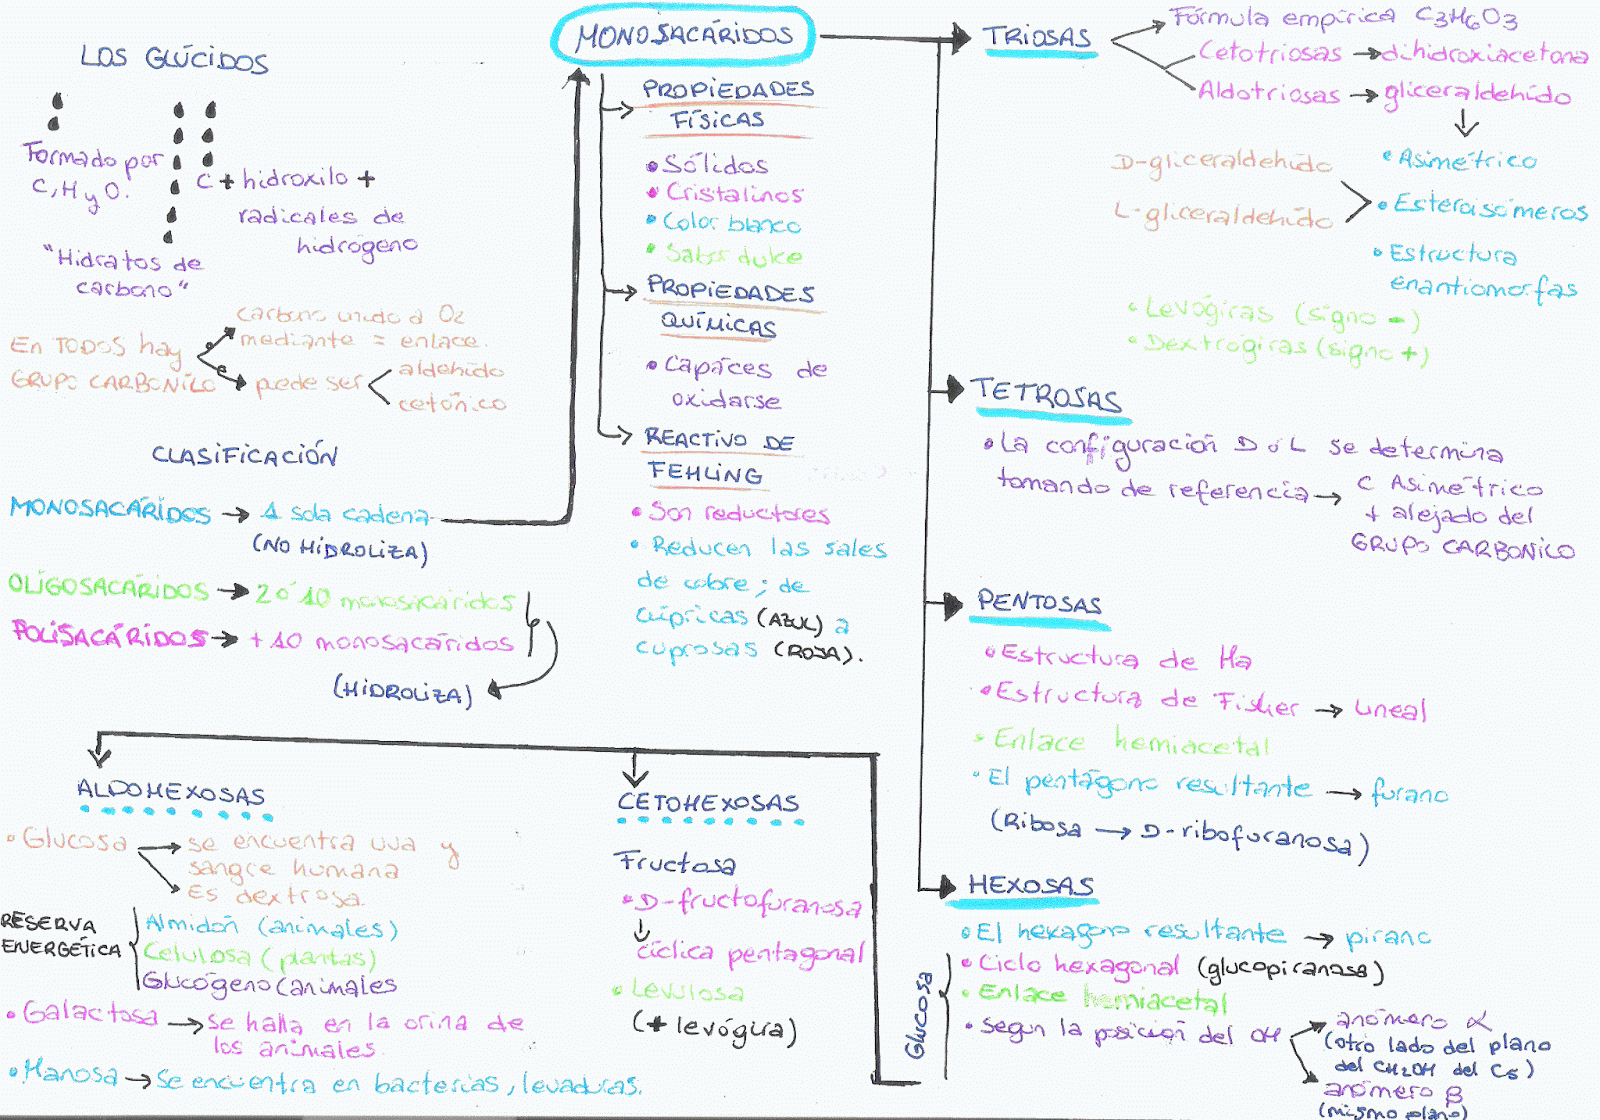 LOS GLÚCIDOS
Formado por
C, H y O.
C + hidroxilo +
radicales de
hidrógeno
"Hidratos de
carbono"
En TODOS hay
GRUPO CARBONILO
carbono unido a O2
mediante = enlace.
puede ser
aldehido
cetónico
CLASIFICACIÓN
MONOSACÁRIDOS → 1 sola cadena
(NO HIDROLIZA)
OLIGOSACÁRIDOS → 2 ó 10 monosacáridos
POLISACÁRIDOS → + 10 monosacáridos
(HIDROLIZA)
MONOSACÁRIDOS
PROPIEDADES
FÍSICAS
• Sólidos
• Cristalinos
• Color blanco
• Sabor dulce
PROPIEDADES
QUÍMICAS
• Capaces de
oxidarse
REACTIVO DE
FEHLING
• Son reductores
• Reducen las sales
de cobre; de
cúpricas (AZUL) a
cuprosas (ROJA).
TRIOSAS
Fórmula empírica C3H6O3
Cetotriosas → dihidroxiacetona
Aldotriosas → gliceraldehído
D-gliceraldehido
L-gliceraldehido
• Asimétrico
• Esteroisómeros
• Estructura
enantiomorfas
• Levógiras (signo -)
• Dextrogiras (signo +)
TETROSAS
• La configuración D ó L se determina
tomando de referencia → C Asimétrico
+ alejado del
GRUPO CARBONILO
PENTOSAS
• Estructura de Ha
• Estructura de Fisher → Lineal
• Enlace hemiacetal
• El pentágono resultante → furano
(Ribosa → D-ribofuranosa)
HEXOSAS
• El hexagono resultante → pirano
• Ciclo hexagonal (glucopiranosa)
• Enlace hemiacetal
• Segun la posición del OH
Glucosa
anómero α
(otro lado del plano
del CH2OH del C5)
anómero β
(mismo plano)
ALDOHEXOSAS
• Glucosa → se encuentra uva y
sangre humana
Es dextrosa.
RESERVA
ENERGÉTICA
Almidón (animales)
Celulosa (plantas)
Glucógeno (animales
• Galactosa → se halla en la orina de
los animales.
• Manosa → se encuentra en bacterias, levaduras.
CETOHEXOSAS
Fructosa
• D-fructofuranosa
cíclica pentagonal
• Levulosa
(+ levógira)